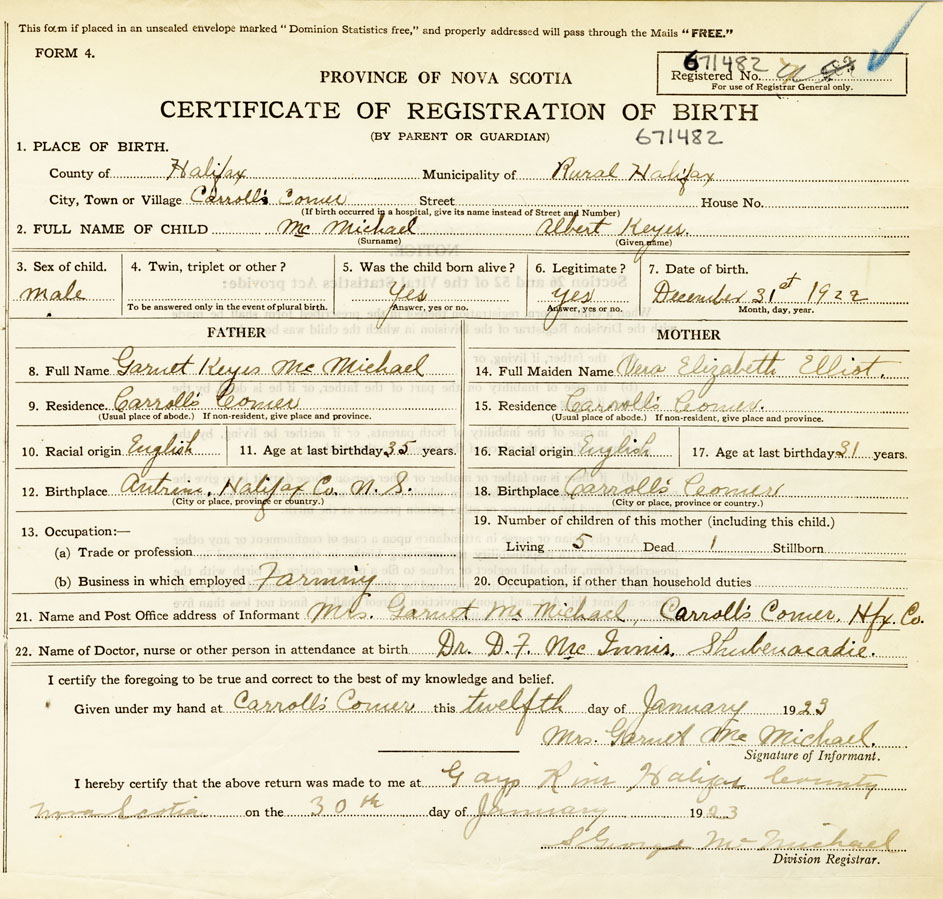 This form if placed in an unsealed envelope marked "Dominion Statistics free," and properly addressed will pass through the Mails "FREE."
FORM 4.
671482
Registered No.
For use of Registrar General only.
PROVINCE OF NOVA SCOTIA
CERTIFICATE OF REGISTRATION OF BIRTH
(BY PARENT OR GUARDIAN)
671482
1. PLACE OF BIRTH.
County of Halifax Municipality of Rural Halifax
City, Town or Village Carroll's Corner Street House No.
(If birth occurred in a hospital, give its name instead of Street and Number)
2. FULL NAME OF CHILD Mc Michael Albert Keyes.
(Surname) (Given name)
3. Sex of child. 4. Twin, triplet or other? 5. Was the child born alive? 6. Legitimate? 7. Date of birth.
male Yes Yes December 31st 1922
To be answered only in the event of plural birth. Answer, yes or no. Answer, yes or no. Month, day, year.
FATHER MOTHER
8. Full Name Garnet Keyes Mc Michael 14. Full Maiden Name Vera Elizabeth Elliot.
9. Residence. Carroll's Corner 15. Residence Carroll's Corner.
(Usual place of abode.) If non-resident, give place and province. (Usual place of abode.) If non-resident, give place and province.
10. Racial origin English 11. Age at last birthday 35 years. 16. Racial origin English 17. Age at last birthday 31 years.
12. Birthplace Antrim, Halifax Co. N. S. 18. Birthplace Carroll's Corner
(City or place, province or country.) (City or place, province or country.)
13. Occupation:— 19. Number of children of this mother (including this child.)
(a) Trade or profession Living 5 Dead 1 Stillborn
(b) Business in which employed Farming 20. Occupation, if other than household duties
21. Name and Post Office address of Informant Mrs. Garnet Mc Michael, Carroll's Corner. Hfx. Co.
22. Name of Doctor, nurse or other person in attendance at birth Dr. D. F. Mc Innis. Shubenacadie.
I certify the foregoing to be true and correct to the best of my knowledge and belief.
Given under my hand at Carroll's Corner this twelfth day of January 1923
Mrs. Garnet Mc Michael.
Signature of Informant.
I hereby certify that the above return was made to me at Gays River Halifax County
Nova Scotia on the 30th day of January 1923
S George Mc Michael
Division Registrar.